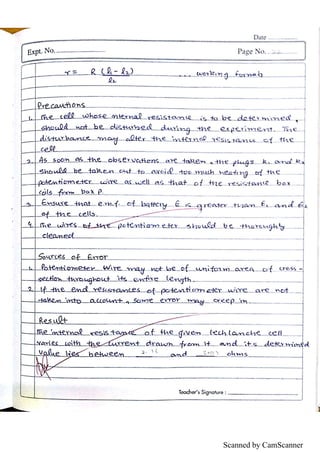 Date
Expt. No.
Page No.
r = R (l1 - l2) ... working formula
l2
Precautions
1. The cell whose internal resistance is to be determined,
should not be disturbed during the experiment. The
disturbance may alter the internal resistance of the
cell
2. As soon as the observations are taken, the plugs K1 and K2
should be taken out to avoid too much heating of the
potentiometer wire as well as that of the resistance box
coils from box P
3. Ensure that e.m.f. of battery E is greater than E1 and E2
of the cells.
4. The wires of the potentiometer should be thoroughly
cleaned
Sources of Error
1. Potentiometer wire may not be of uniform area of cross-
section throughout its entire length.
2. If the end resistances of potentiometer wire are not
taken into account, some error may creep in.
Result
The internal resistance of the given lechlanche cell
varies with the current drawn from it and its determined
value lies between and ohms
Teacher's Signature :
Scanned by CamScanner